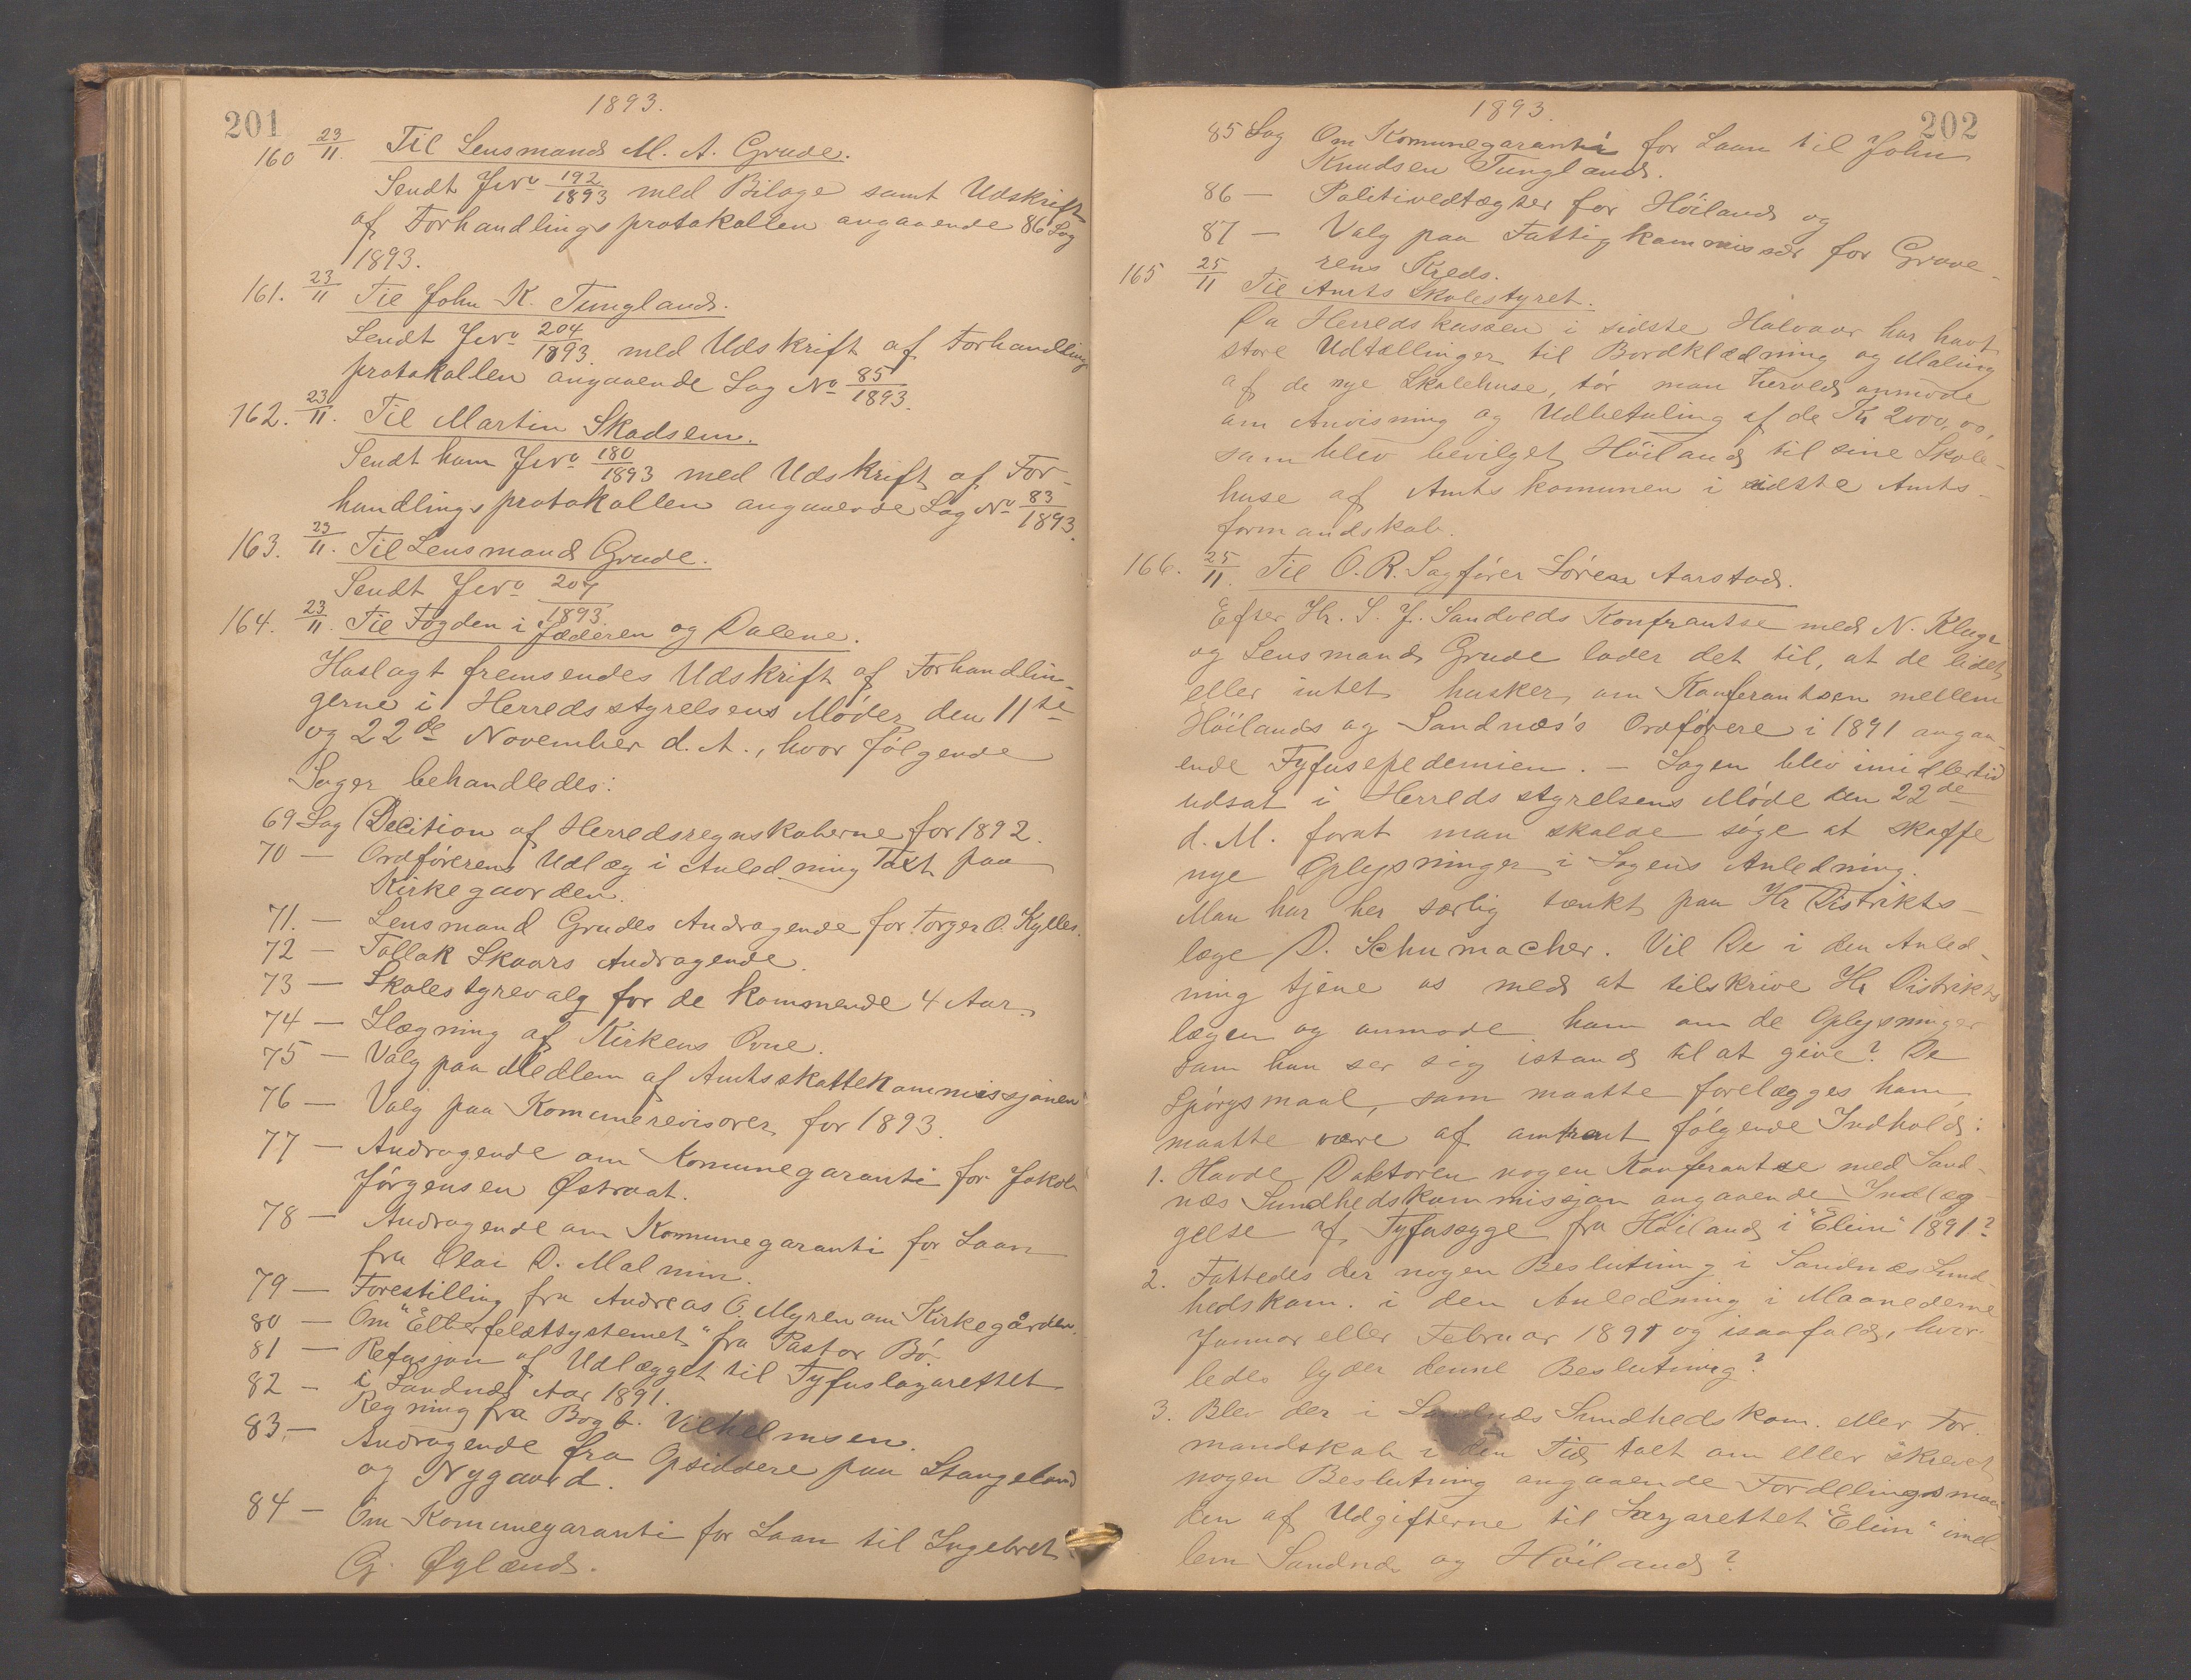 201
1893.
160 23/11. Til Lensmand M. A. Grude.
Sendt J№ 192/1893 med Bilage samt Udskrift
af Forhandlingsprotokollen angaaende 86 Sag
1893.
161. 23/11 Til John K. Tungland.
Sendt J№ 204/1893. med Udskrift af Forhandlings
protokollen angaaende Sag № 85/1893.
162. 23/11. Til Martin Skadsem.
Sendt ham J№ 180/1893 med Udskrift af For-
handlingsprotokollen angaaende Sag № 83/1893.
163. 23/11. Til Lensmand Grude.
Sendt J№ 207/1893.
164. 23/11. Til Fogden i Jæderen og Dalene.
Hoslagt fremsendes Udskrift af Forhandlin-
gerne i Herredsstyrelsens Møder den 11te
og 22de November d. A., hvor følgende
Sager behandledes:
69 Sag Decition af Herredsregnskaberne for 1892.
70 — Ordførerens Udlæg i Anledning Taxt paa
Kirkegaarden.
71. — Lensmand Grudes Andragende for Torger O. Kylles.
72 — Tollak Skaars Andragende.
73 — Skolestyrevalg for de kommende 4 Aar.
74 — Ilægning af Kirkens Ovne.
75 — Valg paa Medlem af Amtsskattekommissjonen
76 — Valg paa Komunerevisorer for 1893.
77 — Andragende om Komunegaranti for Jakob
Jørgensen Østraat.
78 — Andragende om Komunegaranti for Laan
fra Olai D. Malmin.
79 — Forestilling fra Andreas O. Myren om Kirkegården.
80 — Om "Elberfeldtsystemet" fra Pastor Bø.
81 — Refusjon af Udlægget til Tyfuslazarettet
i Sandnæs Aar 1891.
82 — Regning fra Bogb. Vilhelmsen.
83 — Andragende fra Opsiddere paa Stangeland
og Nygaard.
84 — Om Komunegaranti for Laan til Ingebret
G. Øglænd.
1893.
202
85 Sag Om Komunegaranti for Laan til John
Knudsen Tungland.
86 — Politivedtægter for Höiland og
87 — Valg paa Fattigkommissær for Grave-
rens Kreds.
165 25/11 Til Amts Skolestyret.
Da Herredskassen i sidste Halvaar har havt
store Udtællinger til Bordklædning og Maling
af de nye Skolehuse, tör man herved anmode
om Anvisning og Udbetaling af de Kr 2000,00,
som blev bevilget Höiland til sine Skole-
huse af Amtskomunen i sidste Amts-
formandskab.
166. 25/11. Til O. R. Sagfører Sören Aarstad.
Efter Hr. S. J. Sandveds Konfrantse med N. Kluge
og Lensmand Grude lader det til, at de lidet
eller intet husker om Konferantsen mellem
Höilands og Sandnæs's Ordførere i 1891 angaa-
ende Tyfusepedemien. — Sagen blev imidlertid
udsat i Herredsstyrelsens Møde den 22de
d. M. forat man skulde søge at skaffe
nye Oplysninger i Sagens Anledning.
Man har her særlig tænkt paa Hr Distrikts-
læge D. Schumacher. Vil De i den Anled-
ning tjene os med at tilskrive Hr Distrikts
lægen og anmode ham om de Oplysninger
som han ser sig istand til at give? De
Spørgsmaal, som maatte forelægges ham,
maatte være af omtrent følgende Indhold:
1. Havde Doktoren nogen Konferantse med Sand-
næs Sundhedskommissjon angaaende Indlæg
gelse af Tyfussyge fra Höiland i "Elim" 1891?
2. Fattedes der nogen Beslutning i Sandnæs Sund-
hedskom. i den Anledning i Maanederne
Januar eller Februar 1891 og isaafald, hvor-
ledes lyder denne Beslutning?
3. Blev der i Sandnæs Sundhedskom. eller For-
mandskab i den Tid talt om eller skrevet
nogen Beslutning angaaende Fordelingsmaa-
den af Udgifterne til Lazarettet "Elim" imel-
lem Sandnæs og Höiland?